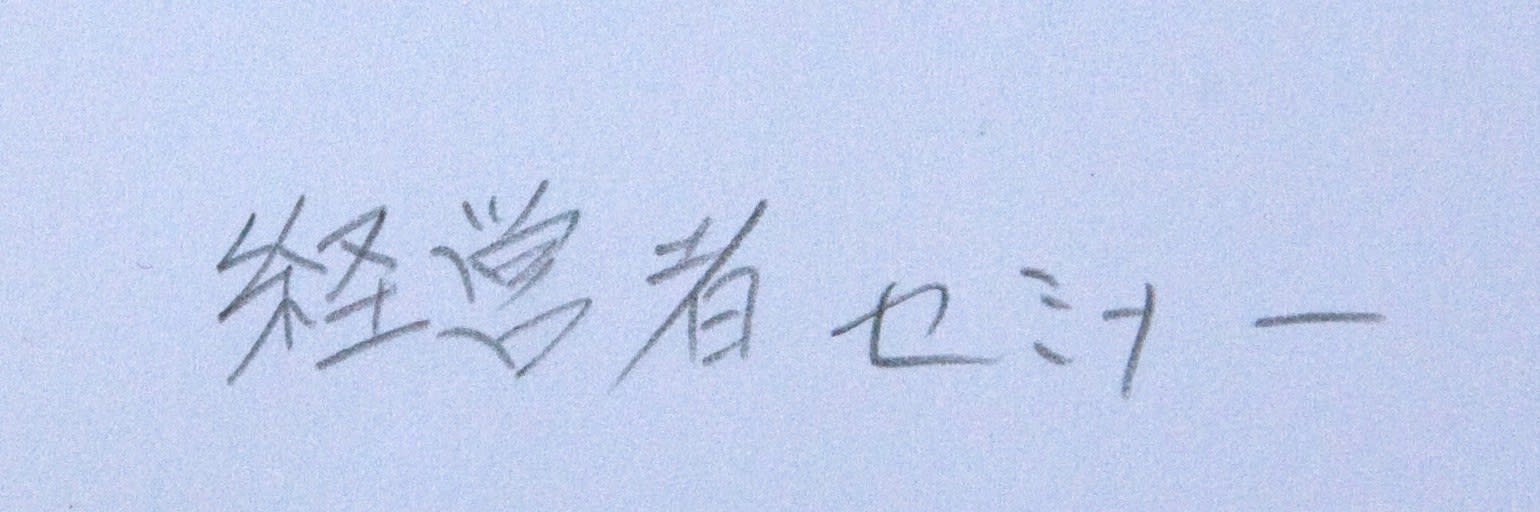 経営者セミナー